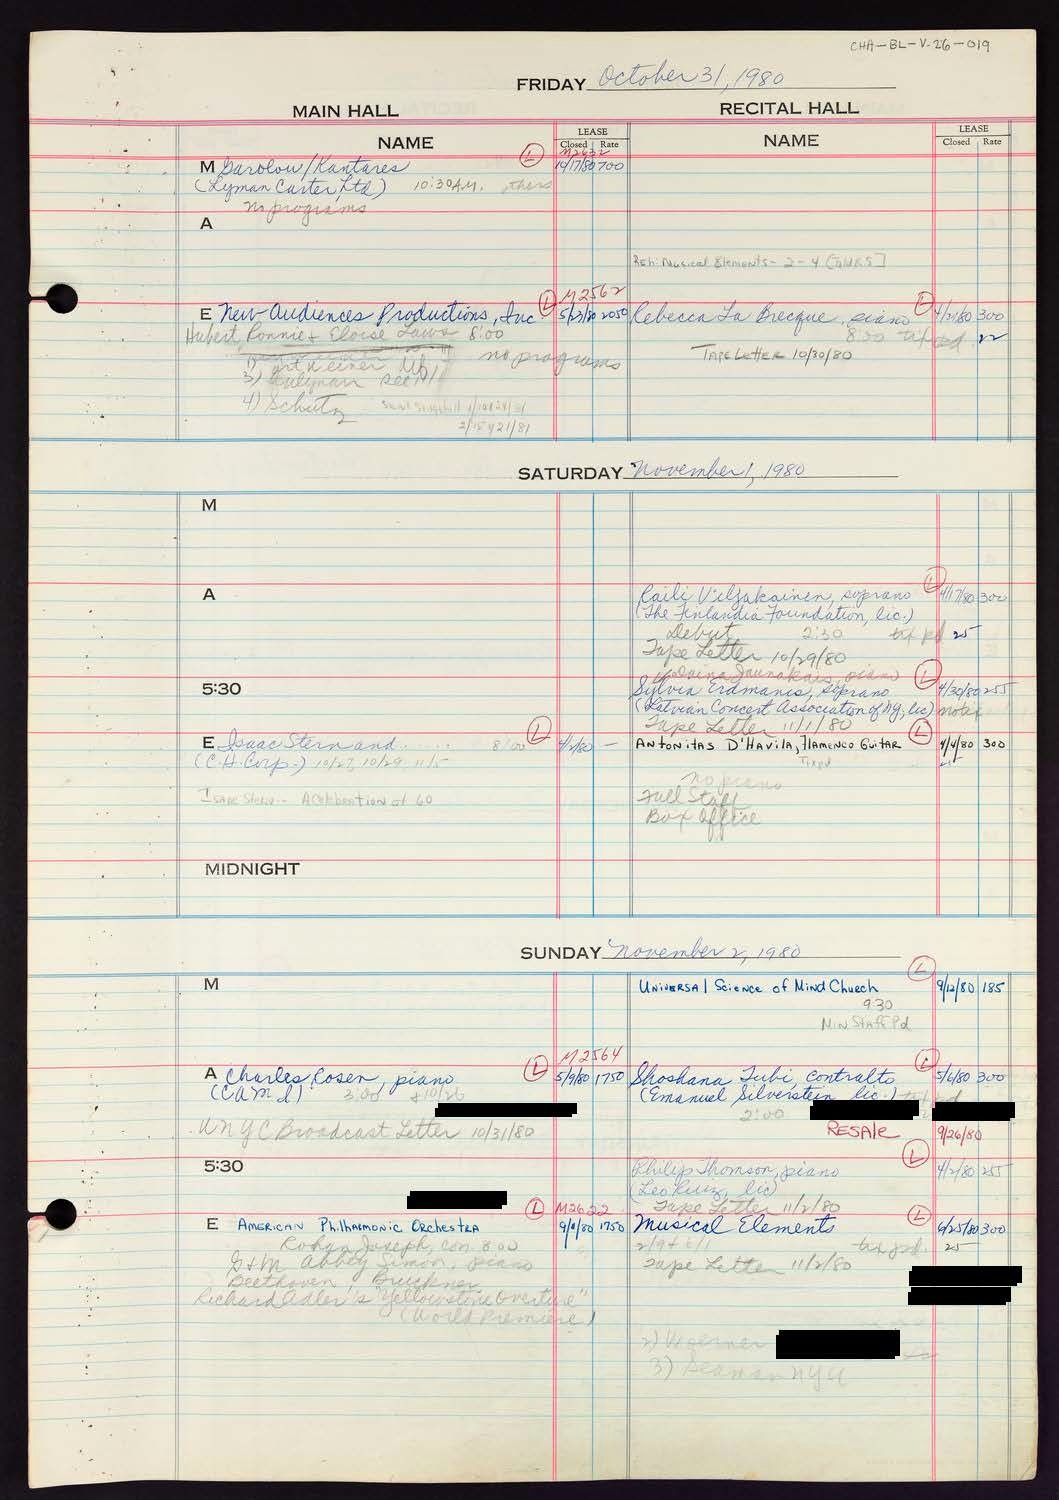 CHA-BL-V.26-019
FRIDAY October 31, 1980
MAIN HALL
RECITAL HALL
NAME
LEASE
Closed Rate
NAME
LEASE
Closed Rate
M2632
M Garolou/Kantares L 10/17/80 700
(Lyman Carter, Ltd) 10:30 A.M.
no programs
A
Reh: Musical Elements - 2-4
M2562
E New Audiences Productions, Inc. L 5/23/80 2050
Hubert, Ronnie + Eloise Laws 8:00
no programs
4) Schutz
2/15 4/21/81
Rebecca La Brecque, piano L 4/2/80 300
8:00 22
TAPE LETTER 10/30/80
SATURDAY November 1, 1980
M
A
Raili Viljakainen, soprano L 4/17/80 300
(The Finlandia Foundation, lic.)
Debut 2:30 txt pd 25
Tape Letter 10/29/80
5:30
piano
Sylvia Erdmanis, soprano L 4/30/80 255
(Latvian Concert Association of NY, lic) notes
Tape Letter 11/1/80
E Isaac Stern and 8:00 L 4/2/80 —
(C.H. Corp.) 10/27, 10/29, 11/5
Isaac Stern - A Celebration at 60
ANTONITAS D'HAVILA, FLAMENCO GUITAR L 4/4/80 300
Tixpd
no piano
Full Staff
Box Office
MIDNIGHT
SUNDAY November 2, 1980
M
UNIVERSAL SCIENCE OF MIND CHURCH L 9/12/80 185
9:30
MIN STAFF Pd
M2564
A Charles Rosen, piano L 5/9/80 1750
(CAMI) 3:00
WNYC Broadcast Letter 10/31/80
Shoshana Tubi, contralto L 5/6/80 300
(Emanuel Silverstein, lic.)
2:00
RESALE 9/26/80
5:30
Philip Thomson, piano L 4/2/80 255
(Leo Ruiz, lic)
Tape Letter 11/2/80
M2622
E AMERICAN PHILHARMONIC ORCHESTRA L 1750
Rohan Joseph, con. 8:00
G+M Abbey Simon, piano
Beethoven, Bruckner
Richard Adler's "Yellowstone Overture"
(World Premiere)
Musical Elements L 6/25/80 300
txt pd. 25
Tape Letter 11/2/80
2) Woerner
3) Seaman NYU